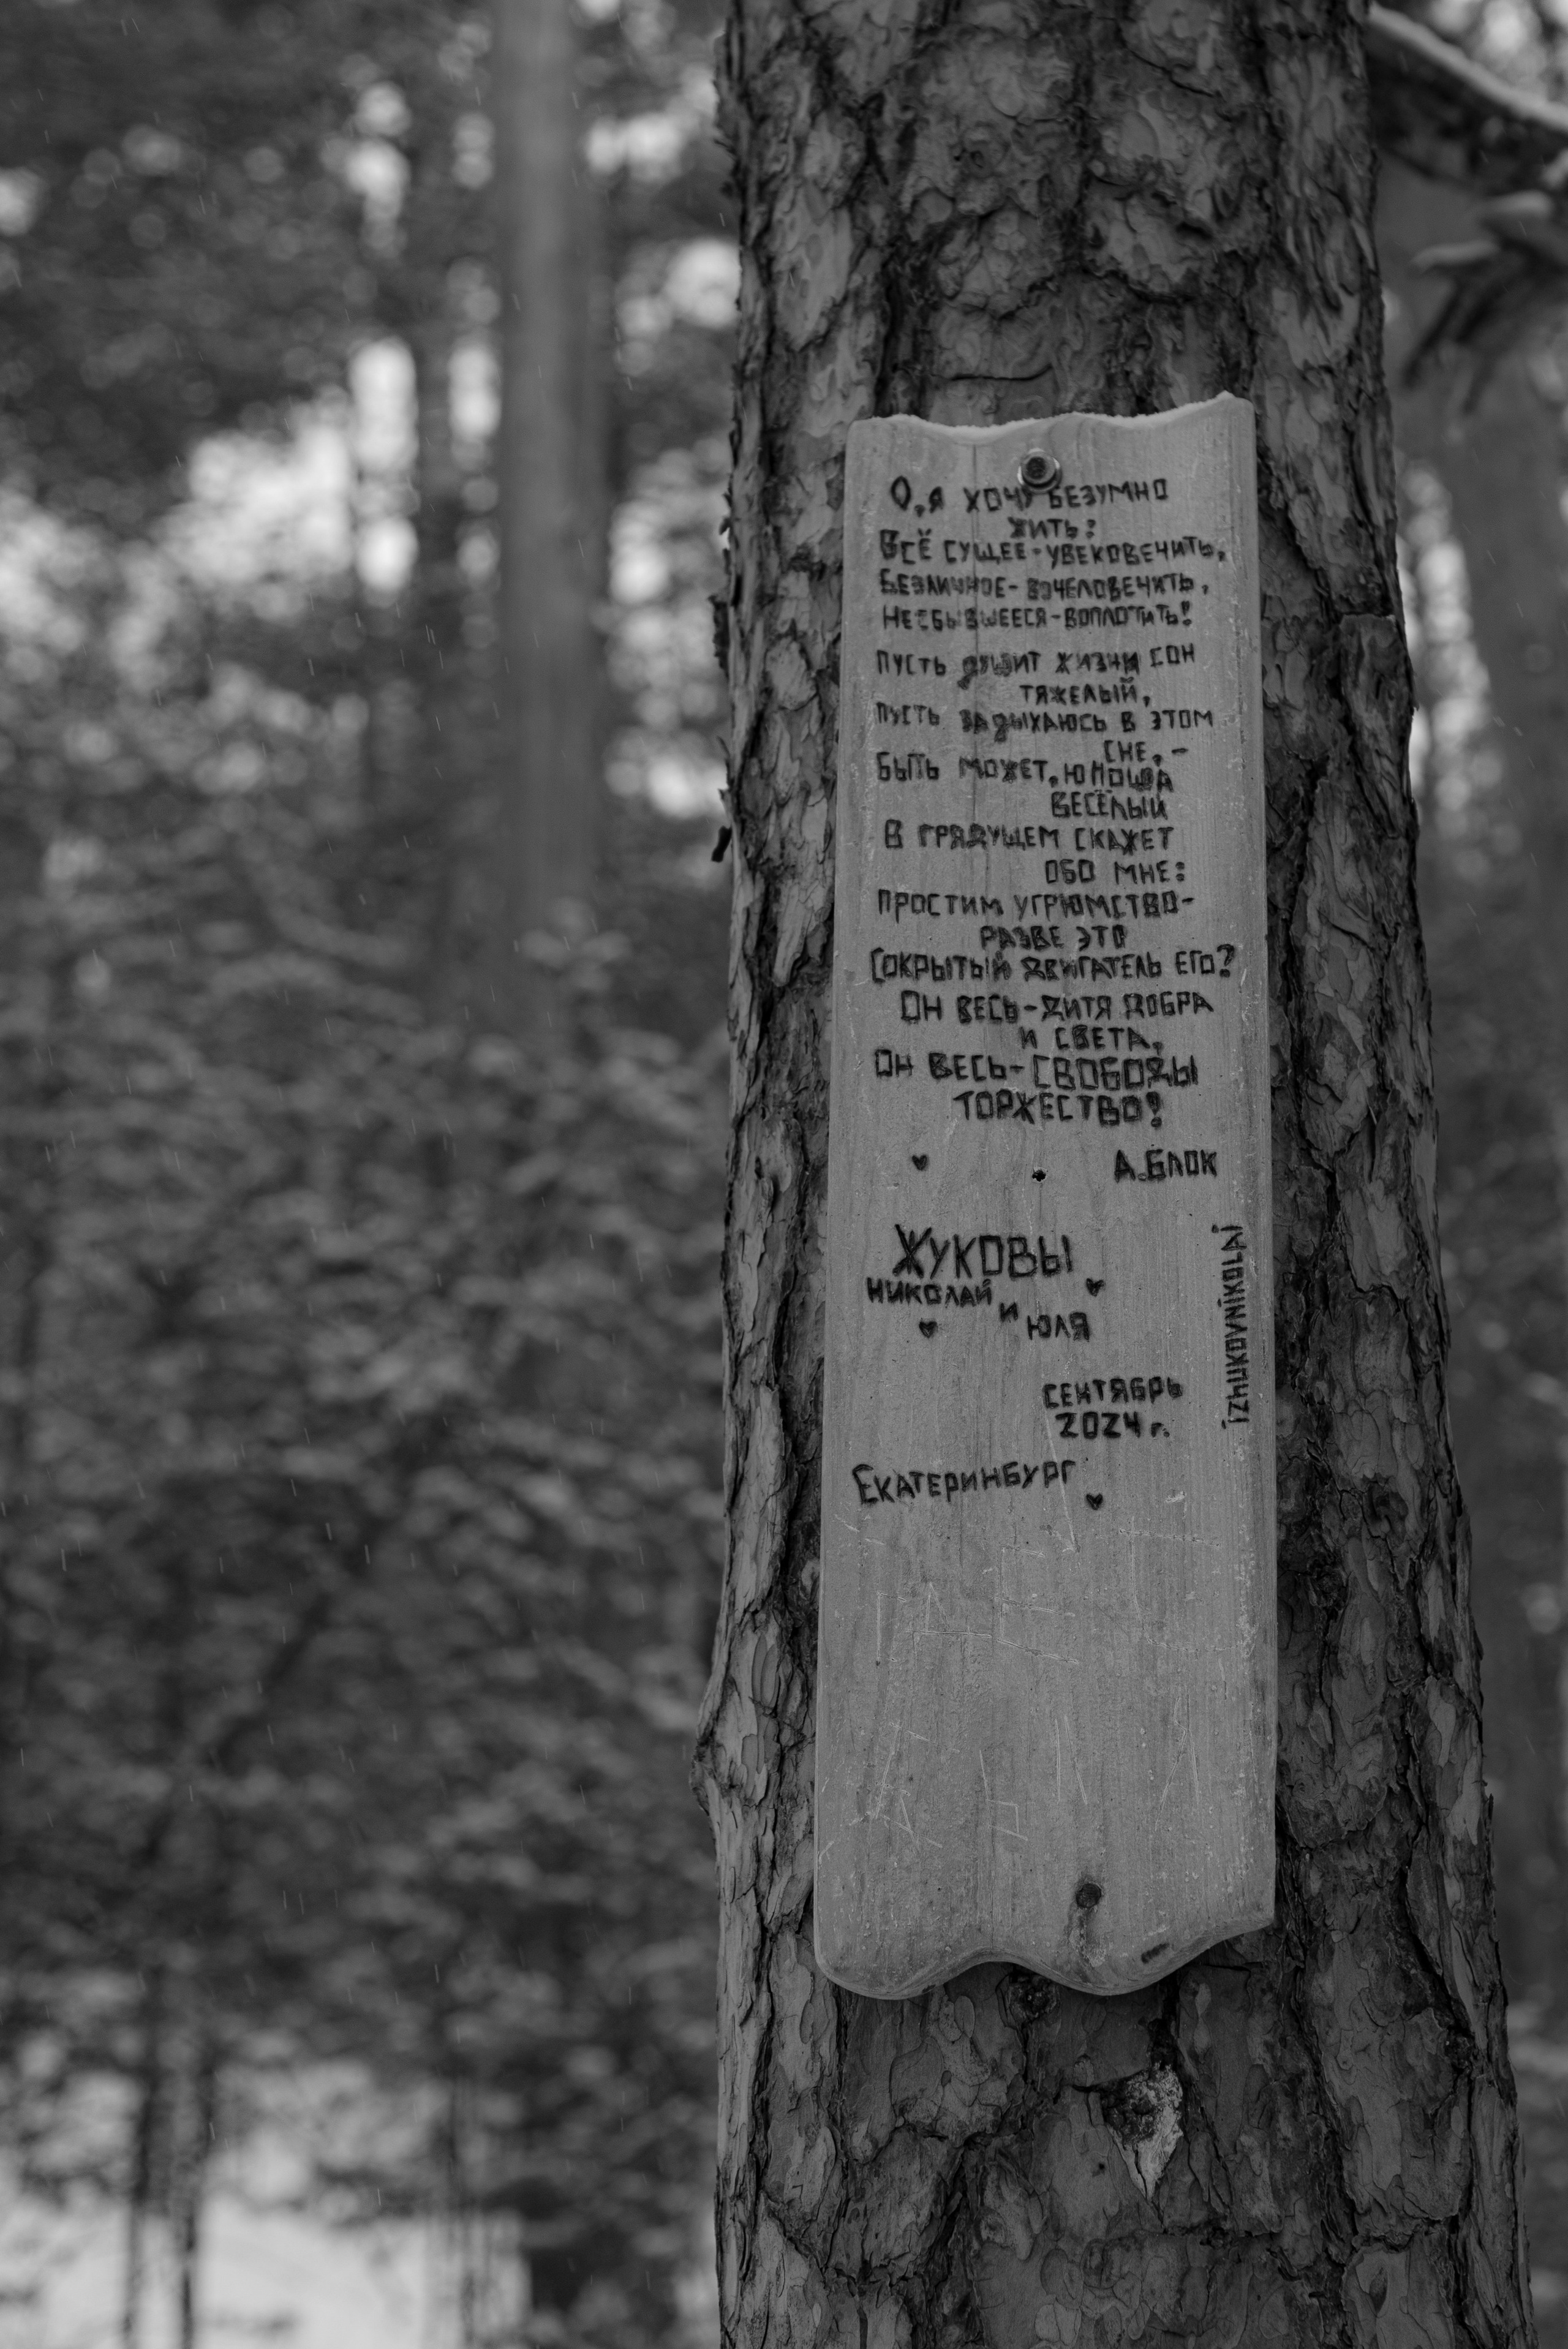 О, я хочу безумно
жить:
Всё сущее-увековечить,
Безличное-вочеловечить,
Несбывшееся-воплотить!
Пусть душит жизни сон
тяжелый,
Пусть задыхаюсь в этом
сне,-
Быть может, юноша
весёлый
В грядущем скажет
обо мне:
Простим угрюмство-
разве это
Сокрытый двигатель его?
Он весь-дитя добра
и света,
Он весь-свободы
торжество!
А.Блок
ЖУКОВЫ
НИКОЛАЙ
И
ЮЛЯ
izhukovnikolai
СЕНТЯБРЬ
2024 г.
ЕКАТЕРИНБУРГ